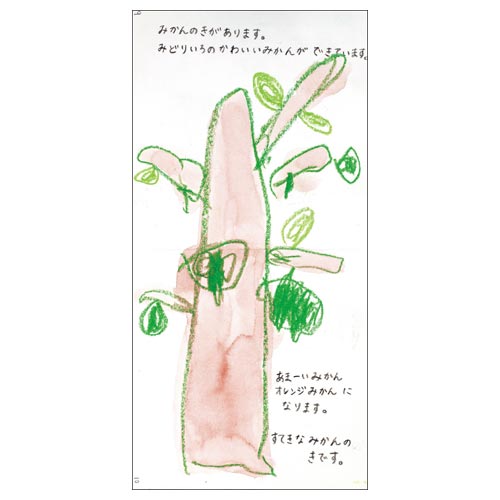 みかんのきがあります。
みどりいろのかわいいみかんができています。
あまーいみかん
オレンジみかんに
なります。
すてきなみかんの
きです。